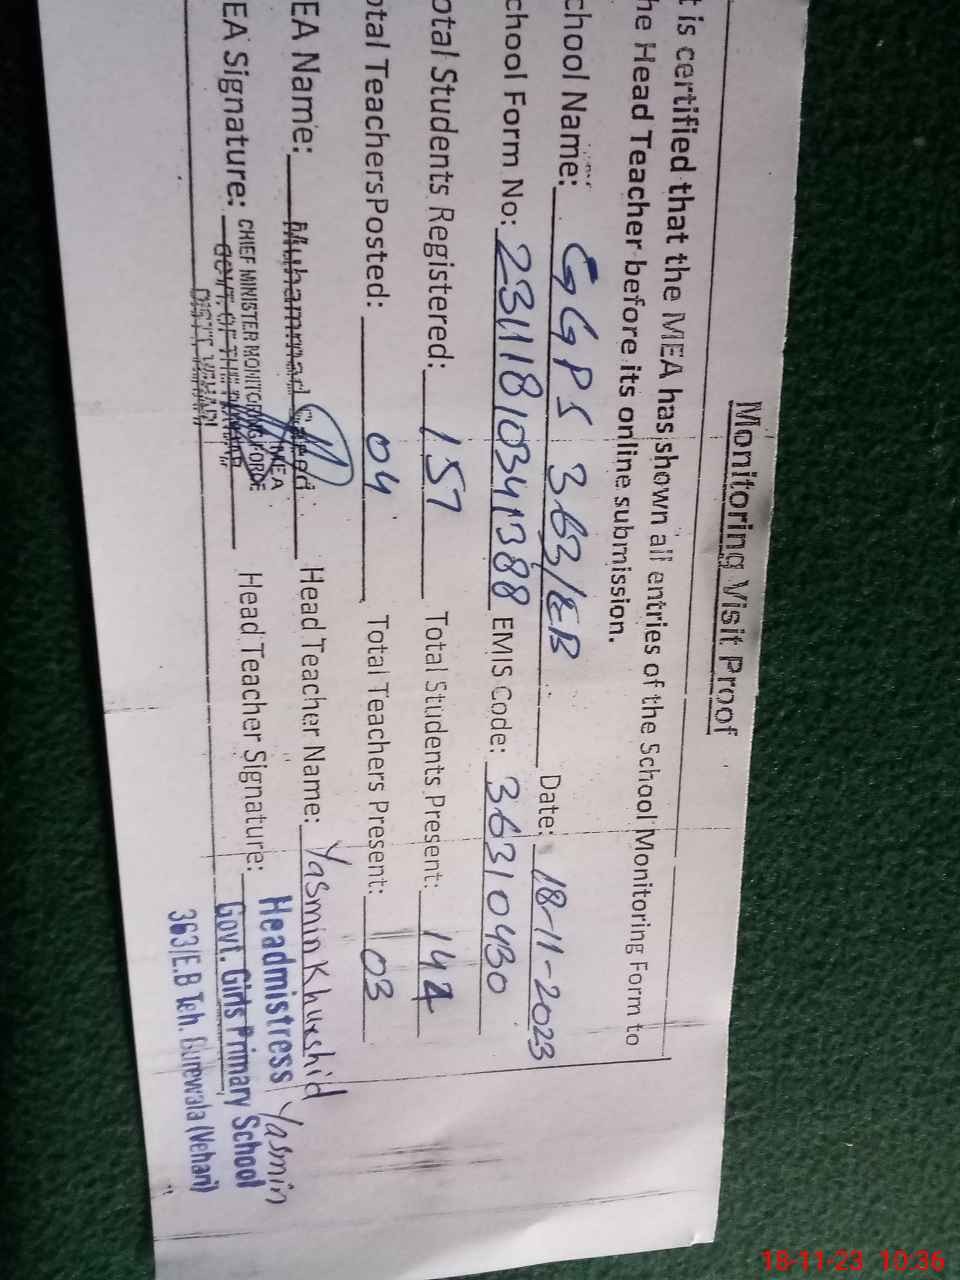 Monitoring Visit Proof
t is certified that the MEA has shown all entries of the School Monitoring Form to
he Head Teacher before its online submission.
chool Name: GGPS 363/EB Date: 18-11-2023
chool Form No: 23111810341388 EMIS Code: 36310430
otal Students Registered: 157 Total Students Present: 144
otal TeachersPosted: 04 Total Teachers Present: 03
EA Name: Muhammad Head Teacher Name: Yasmin Khurshid
MEA
EA Signature: CHIEF MINISTER MONITORING FORCE Head Teacher Signature: Headmistress Yasmin
GOVT. OF THE PUNJAB
DISTT. VEHARI
Govt. Girls Primary School
363/E.B Teh. Burewala (Vehari)
18-11-23 10:36